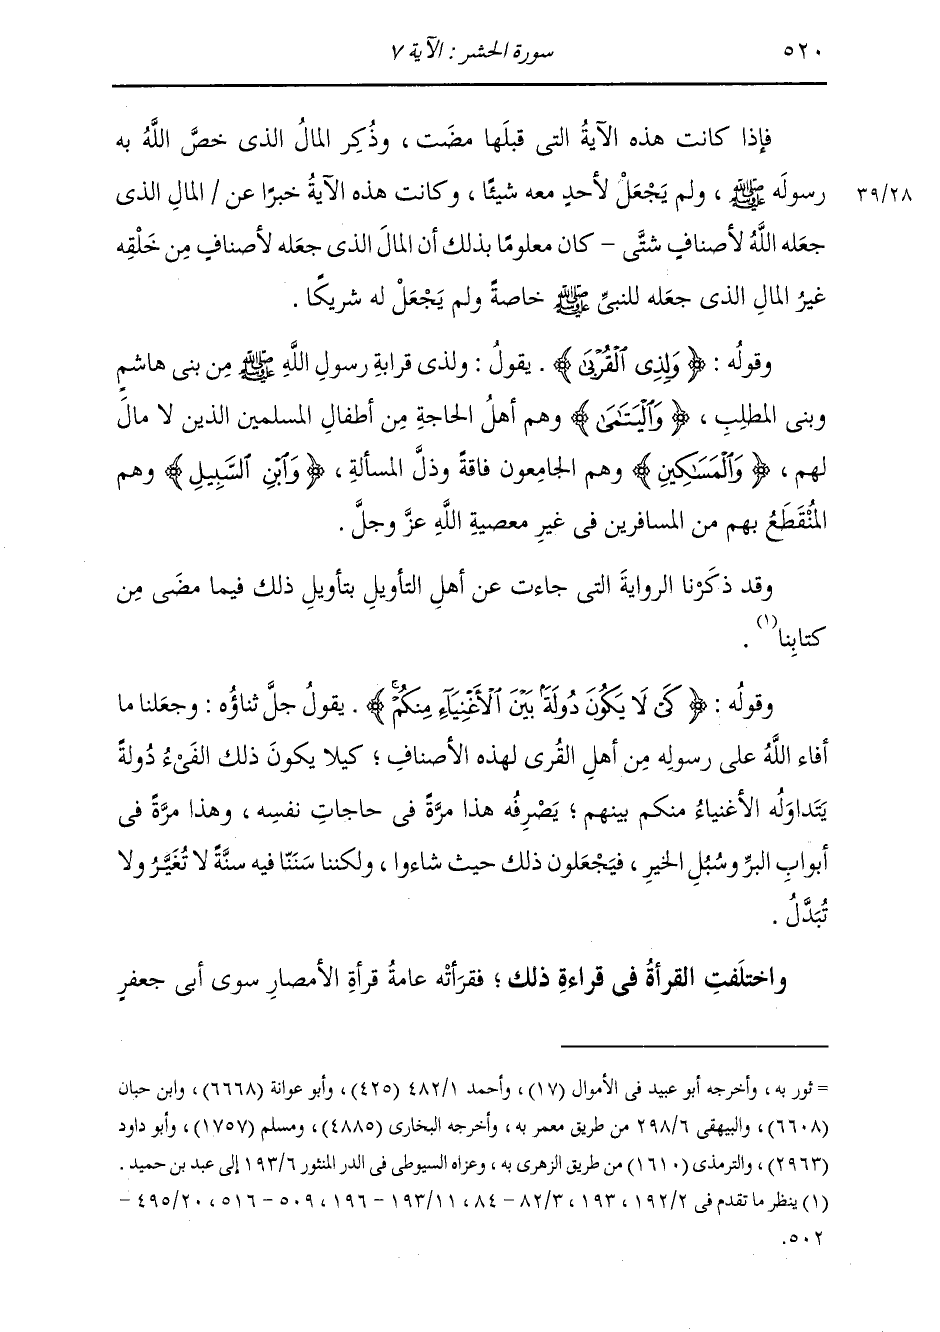 ٥٢٠
سورة الحشر : الآية ٧
فإذا كانت هذه الآيةُ التى قبلَها مضَت ، وذُكِر المالُ الذى خصَّ اللَّهُ به
رسولَه ﷺ ، ولم يَجْعَلْ لأحدٍ معه شيئًا ، وكانت هذه الآيةُ خبرًا عن / المالِ الذى
٣٩/٢٨
جعَله اللَّهُ لأصنافٍ شتَّى – كان معلومًا بذلك أن المالَ الذى جعَله لأصنافٍ مِن خَلْقِه
غيرُ المالِ الذى جعَله للنبىِّ ﷺ خاصةً ولم يَجْعَلْ له شريكًا .
وقولُه : ﴿ وَلِذِى ٱلْقُرْبَىٰ ﴾ . يقولُ : ولذى قرابةِ رسولِ اللَّهِ ﷺ مِن بنى هاشمٍ
وبنى المطلبِ ، ﴿ وَٱلْيَتَٰمَىٰ ﴾ وهم أهلُ الحاجةِ مِن أطفالِ المسلمين الذين لا مالَ
لهم ، ﴿ وَٱلْمَسَٰكِينِ ﴾ وهم الجامِعون فاقةً وذلَّ المسألةِ ، ﴿ وَٱبْنِ ٱلسَّبِيلِ ﴾ وهم
المُنْقَطَعُ بهم من المسافرين فى غيرِ معصيةِ اللَّهِ عزَّ وجلَّ .
وقد ذكَرْنا الروايةَ التى جاءت عن أهلِ التأويلِ بتأويلِ ذلك فيما مضَى مِن
كتابِنا(١) .
وقولُه : ﴿ كَىْ لَا يَكُونَ دُولَةًۢ بَيْنَ ٱلْأَغْنِيَآءِ مِنكُمْۚ ﴾ . يقولُ جلَّ ثناؤُه : وجعَلنا ما
أفاء اللَّهُ على رسولِه مِن أهلِ القُرى لهذه الأصنافِ ؛ كيلا يكونَ ذلك الفَىْءُ دُولةً
يَتَداوَلُه الأغنياءُ منكم بينهم ؛ يَصْرِفُه هذا مرَّةً فى حاجاتِ نفسِه ، وهذا مرَّةً فى
أبوابِ البرِّ وسُبُلِ الخيرِ ، فيَجْعَلون ذلك حيث شاءوا ، ولكننا سَنَنَّا فيه سنَّةً لا تُغَيَّرُ ولا
تُبَدَّلُ .
واختلَفتِ القرأةُ فى قراءةِ ذلك ؛ فقرَأتْه عامةُ قرأةِ الأمصارِ سوى أبى جعفرٍ
= ثور به ، وأخرجه أبو عبيد فى الأموال (١٧) ، وأحمد ٤٨٢/١ (٤٢٥) ، وأبو عوانة (٦٦٦٨) ، وابن حبان
(٦٦٠٨) ، والبيهقى ٢٩٨/٦ من طريق معمر به ، وأخرجه البخارى (٤٨٨٥) ، ومسلم (١٧٥٧) ، وأبو داود
(٢٩٦٣) ، والترمذى (١٦١٠) من طريق الزهرى به ، وعزاه السيوطى فى الدر المنثور ١٩٣/٦ إلى عبد بن حميد .
(١) ينظر ما تقدم فى ١٩٢/٢ ، ١٩٣ ، ٨٢/٣ – ٨٤ ، ١٩٣/١١ – ١٩٦ ، ٥٠٩ – ٥١٦ ، ٤٩٥/٢٠ –
٥٠٢ .